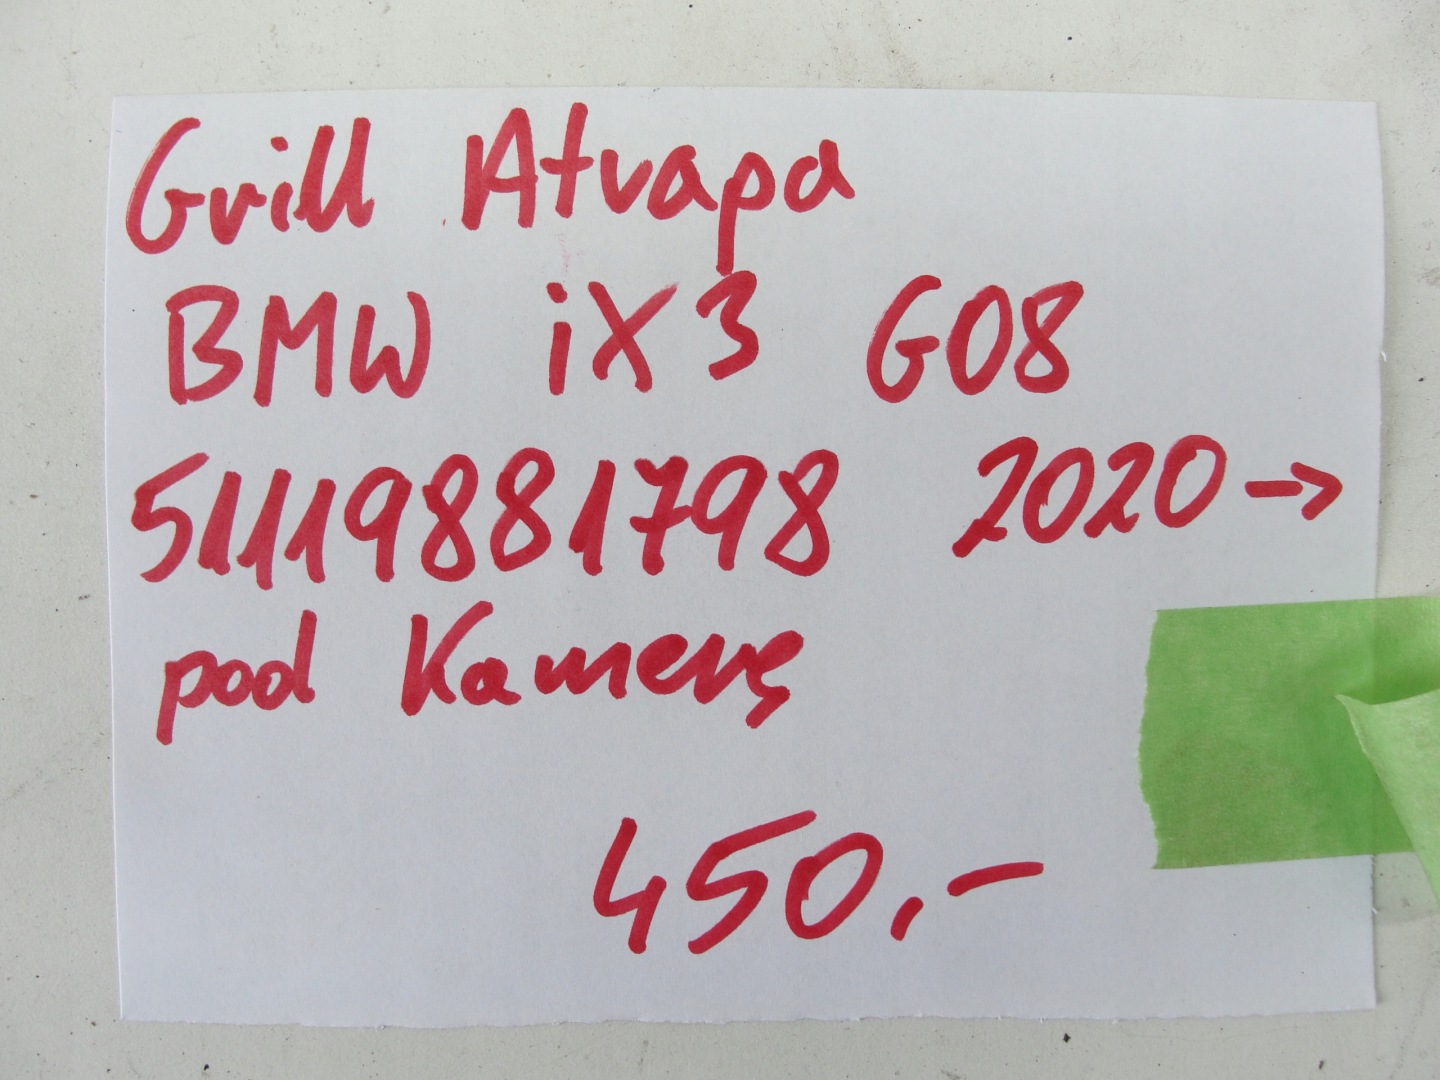 Grill Atrapa
BMW iX3 G08
51119881798 2020 →
pod Kamerę
450,-